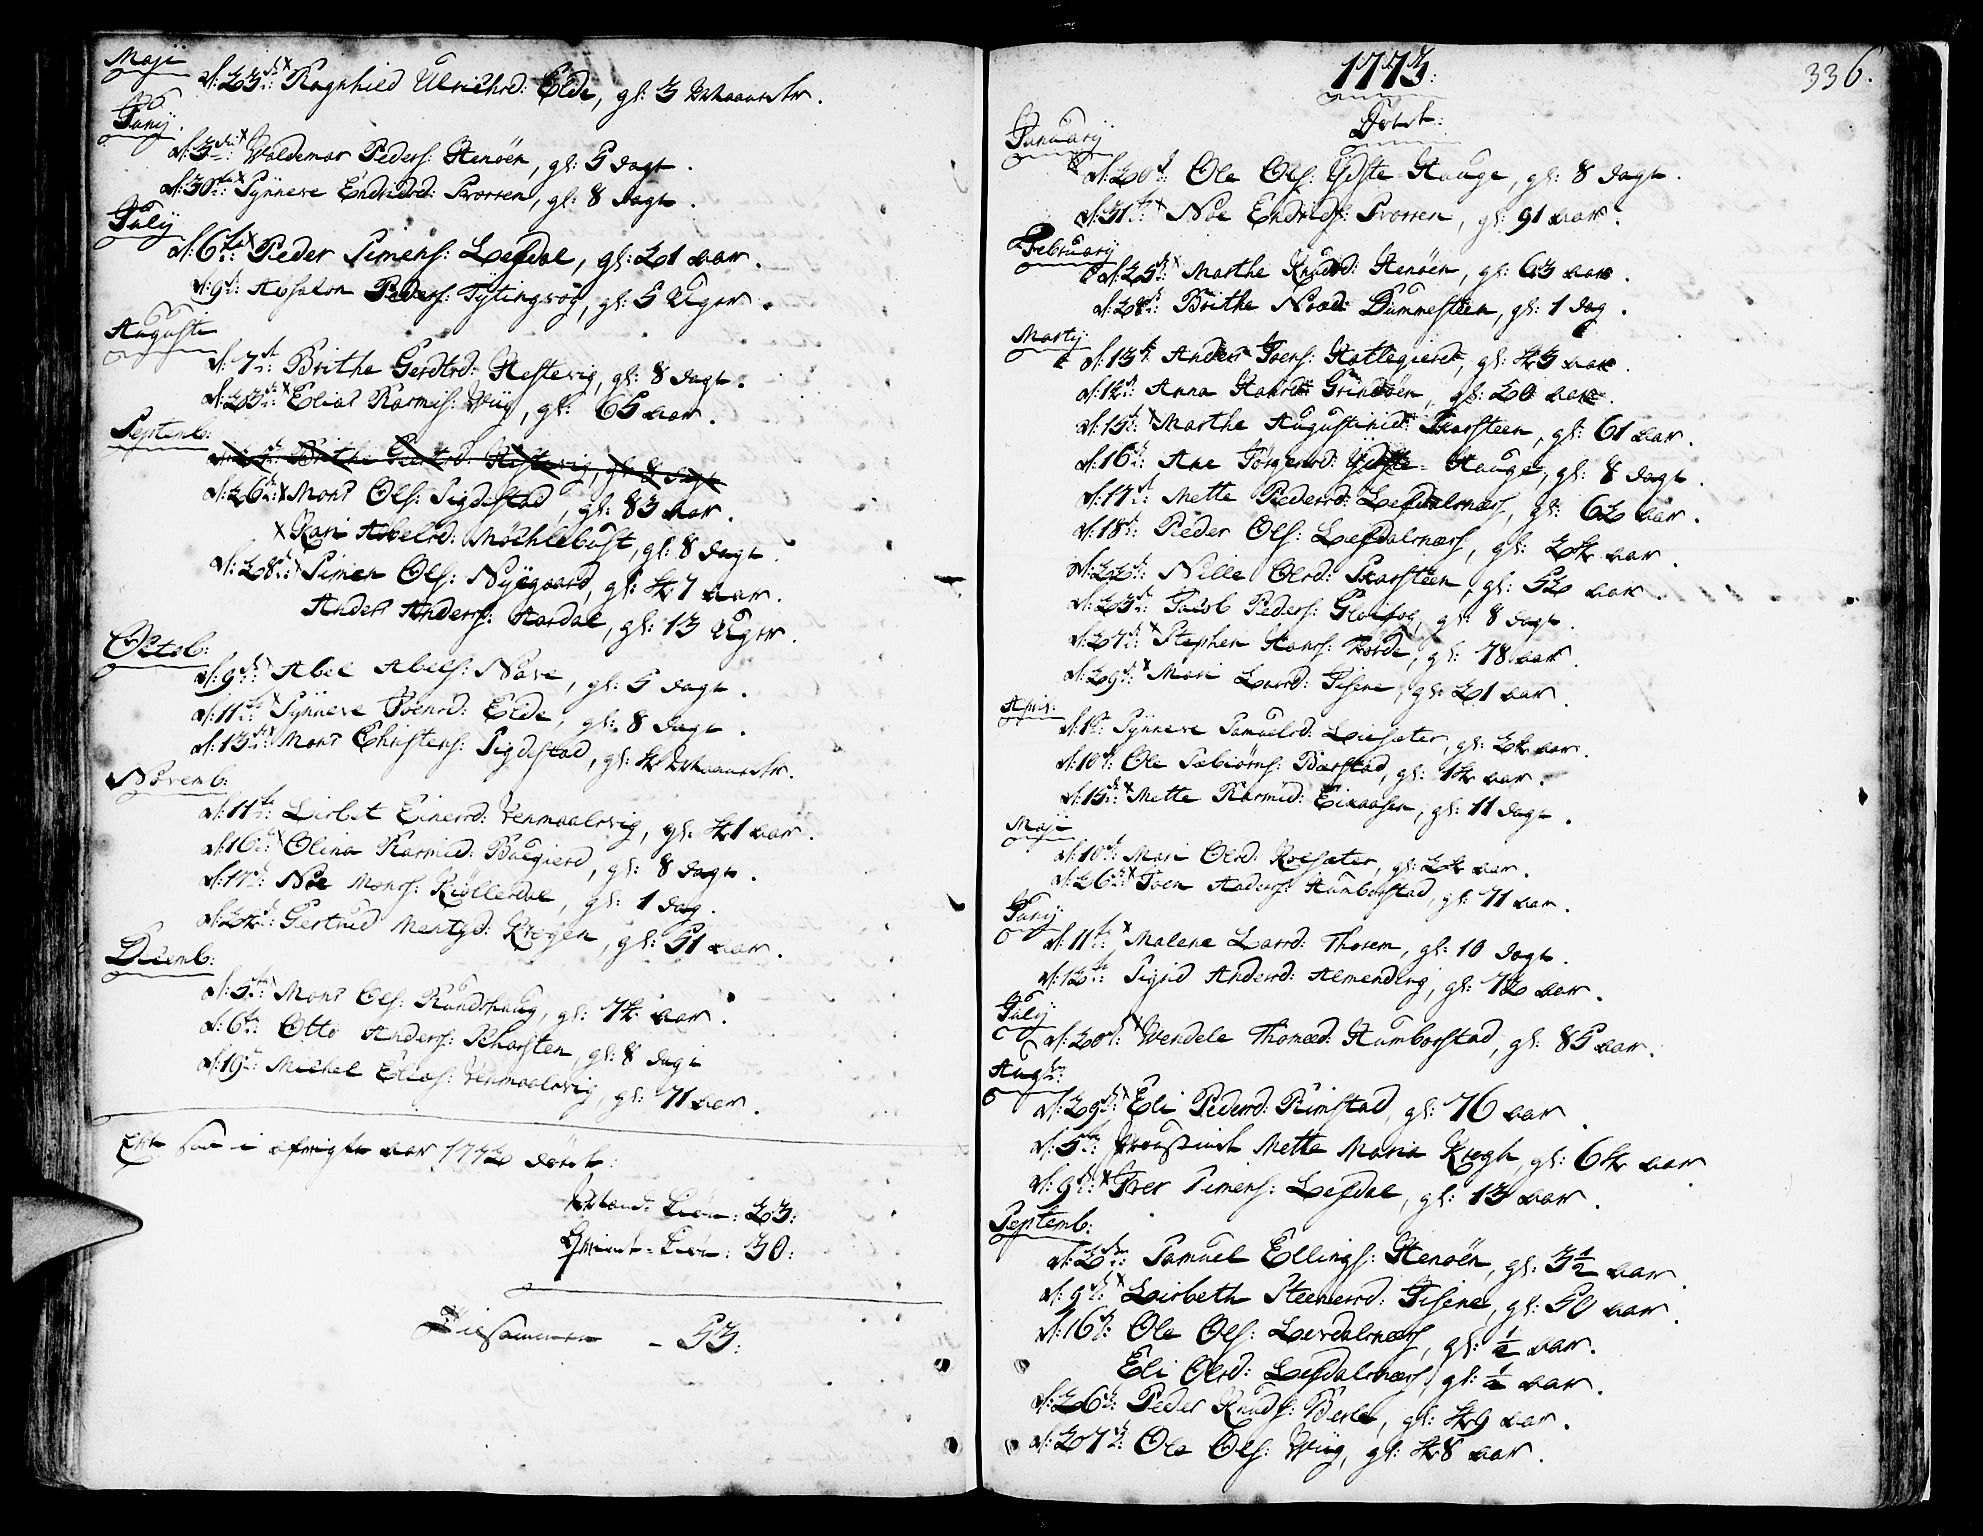 Maji
d: 23de: x Ragnhild Ulrichsd: Elde, gl: 3 Maaneder.
Junij.
d: 3die: x Woldemar Peders: Henøen, gl: 5 dage.
d: 30te: x Synneve Endresd: Sporren, gl: 8 dage.
July
d: 6te: x Peder Simens: Lefdal, gl: 21 aar.
d: 9de: Absalon Peders: Tytingvog, gl: 5 Uger.
Augusti
d: 7de: Brithe Gerdtsd: Hestevig, gl: 8 dage.
d: 23de: x Elias Rasmus: Wiig, gl: 65 aar.
Septemb:
Brithe Geertsd: Hestevig, gl: 8 dage
d: 26de: x Mons Ols: Sigdestad, gl: 83 aar.
x Kari Abelsd: Møchlebust, gl: 8 dage.
d: 28de: x Simen Ols: Nyegaard, gl: 47 aar.
Anders Anders: Aardal, gl: 13 Uger.
Octob:
d: 9de: x Abel Abels: Nave, gl: 5 dage.
d: 11te: x Synneve Joensd: Elde, gl: 8 dage.
d: 13de: x Mons Christens: Sigdestad, gl: 4 Maaneder.
Novemb:
d: 11te: Lisbet Einersd: Venmaalsvig, gl: 41 aar.
d: 16de: x Olina Rasmusd: Bugierd, gl: 8 dage.
d: 17de: Noe Monss: Kiøllesdal, gl: 1 dag.
d: 24de: Giertrud Mentzd: Krogen, gl: 51 aar.
Decemb:
d: 5te: x Mons Ols: Rundshaug, gl: 74 aar.
d: 6te: Otto Anders: Skorsten, gl: 8 dage
d: 19de: Michel Elias: Venmaalsvig, gl: 71 aar.
Ere saa i afvigte aar 1772 døde:
Mand-Kiøn: 23:
Qvinde-Kiøn: 30:
Tilsammen - 53:
336.
1773:
Døde:
January
d: 20de: Ole Ols: Ydste-Hauge, gl: 8 dage.
d: 31te: x Noe Endrids: Sporren, gl: 91 aar.
February
d: 25de: x Marthe Knudsd: Henøen, gl: 63 aar.
d: 28de: Brithe Noed: Dummesteen, gl: 1 dag.
Martij
d: 13de: Anders Joens: Hattegierd, gl: 43 aar.
d: 12de: Anna Hansd: Grindøen, gl: 20 aar.
d: 15de: x Marthe Augustinid: Skorsteen, gl: 61 aar.
d: 16de: Ane Jørgensd: Ydste-Hauge, gl: 8 dage.
d: 17de: Mette Pedersd: Lefdalsnæs, gl: 62 aar.
d: 18de: Peder Ols: Lefdalsnæs, gl: 24 aar.
d: 22de: Nille Olsd: Skorsteen, gl: 52 aar.
d: 23de: Jacob Peders: Gloesog, gl: 8 dage.
d: 27de: x Stephen Hans: Torde, gl: 78 aar.
d: 29de: x Mari Larsd: Gisene, gl: 21 aar.
April:
d: 1te: Synneve Samuelsd: Liesæter, gl: 24 aar.
d: 10de: Ole Tabiørns: Barstad, gl: 14 aar.
d: 15de: x Mette Rasmusd: Eikaasen, gl: 11 dage.
Maji
d: 10de: Mari Olsd: Rolsæter, gl: 24 aar.
d: 26de: x Joen Anders: Humborstad, gl: 71 aar.
Junij
d: 11te: x Malene Larsd: Thosem, gl: 10 dage.
d: 12te: Sigrid Andersd: Almending, gl: 72 aar.
July
d: 20de: x Wendele Thomæd: Humborstad, gl: 85 aar.
Aug:
d: 29de: x Eli Pedersd: Rimstad, gl: 76 aar.
d: 5te: Mette Maria Krogh, gl: 64 aar
d: 9de: x Iver Simens: Lefdal, gl: 13 aar.
Septemb:
d: 2den: Samuel Ellings: Henøen, gl: 3 1/2 aar.
d: 9de: x Lisbeth Steenersd: Gisene, gl: 50 aar.
d: 16de: Ole Ols: Levdalsnæs, gl: 1/2 aar.
Eli Olsd: Lefdalsnæs, gl: 1/2 aar.
d: 26de: Peder Knuds: Berle, gl: 49 aar.
d: 27de: Ole Ols: Wiig, gl: 48 aar.